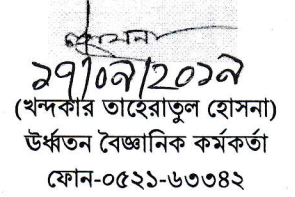 ১৭/০৯/২০১৯
(খন্দকার তাহেরাতুল হোসনা)
উর্ধ্বতন বৈজ্ঞানিক কর্মকর্তা
ফোন-০৫২১-৬৩৩৪২